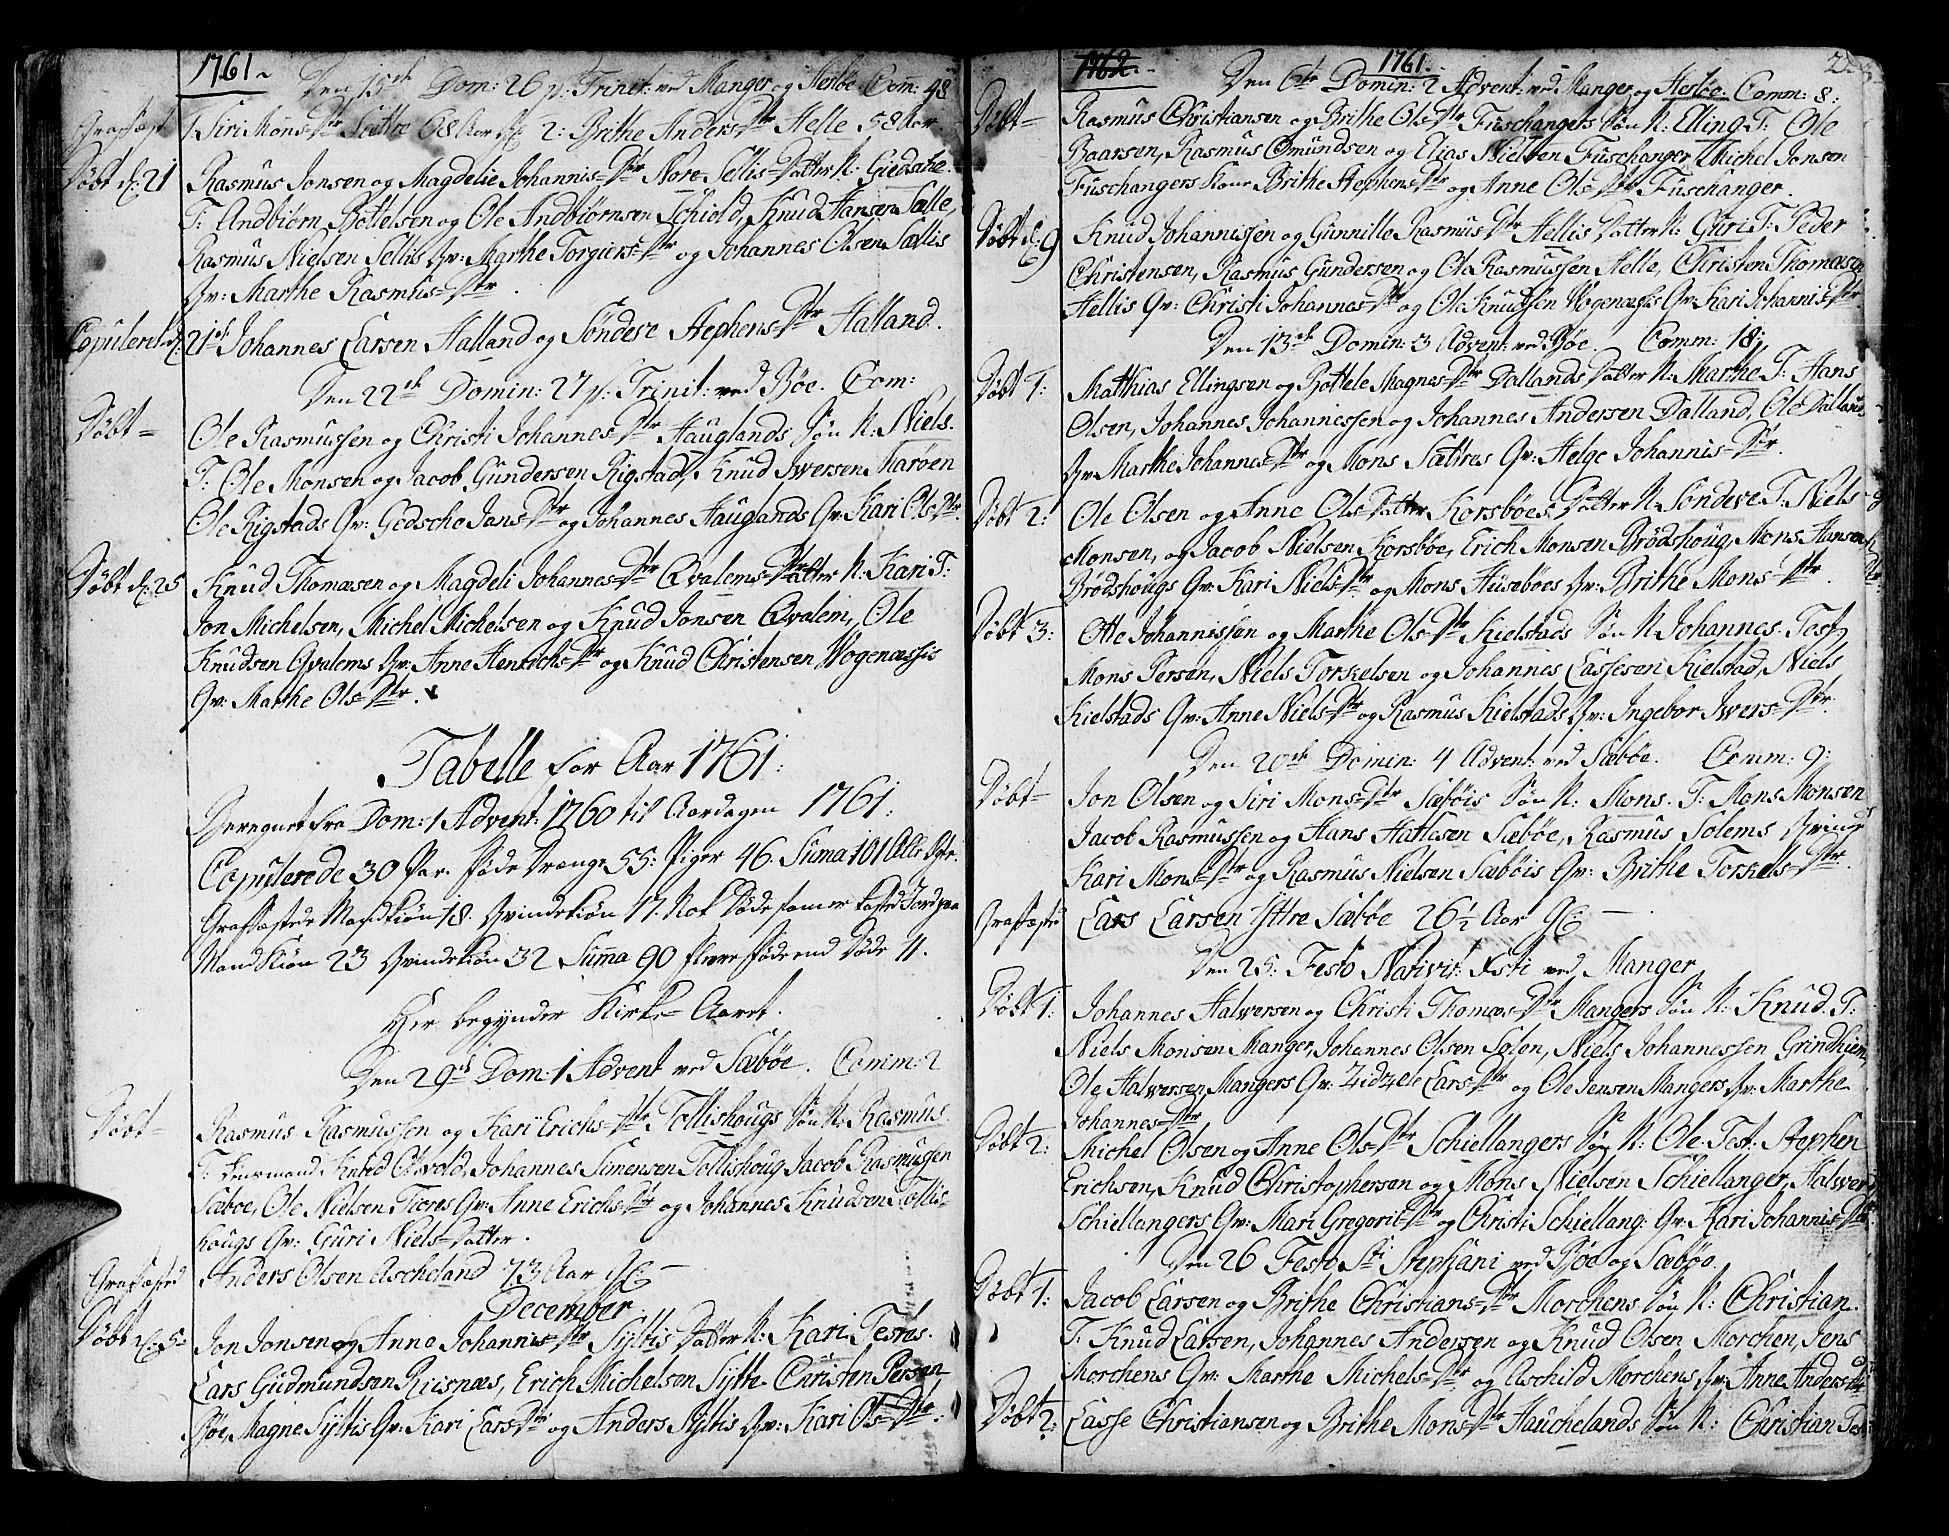 1761
Den 15de Dom: 26 p: Trinit: ved Manger og Herløe Com: 98
Graffæst 1. Siri Mons Dtr Sættre 68 Aar 2: Brithe Anders Dtr Helle 58 Aar.
Døbt d: 21 Rasmus Jonsen og Magdelie Johannis Dtr Nore Sellis Datter N: Giedske
T: Andbiørn Bottelsen og Ole Andbiørnsen Schiold, Knud Hansen Sælle,
Rasmus Nielsen Sellis Qv: Marthe Torgiers Dtr og Johannes Olsen Sællis
Qv: Marthe Rasmus Dtr.
Copuleret d: 21de Johannes Larsen Halland og Søndeve Stephens Dtr Halland.
Den 22de Domin: 27 p: Trinit: ved Bøe. Com:
Døbt Ole Rasmussen og Christi Johannes Dtr Hauglands Søn N: Niels.
T: Ole Monsen og Jacob Gundersen Rigstad, Knud Iwersen Marøen
Ole Rigstads Qv: Gedsche Jans Dtr og Johannes Hauglands Qv: Kari Ols Dtr.
Døbt d: 25 Knud Thomæsen og Magdeli Johannes Dtr Qvalems Datter N: Kari T:
Jon Michelsen, Michel Michelsen og Knud Jonsen Qvalem, Ole
Knudsen Qvalems Qv: Anne Henrichs Dtr og Knud Christensen Wogenæssis
Qv: Marthe Ols Dtr.
Tabelle for Aar 1761:
Beregnet fra Dom: 1 Advent: 1760 til Aardagen 1761:
Copulerede 30 Par. Føde Drenge 55: Piger 46. Suma 101
Graffæstede Mandkiøn 18. Qvindekiøn 17. Nok Døde som er kasted Jord paa
Mandkiøn 23 Qvindekiøn 32 Suma 90 flere føde end Døde 11.
Her begynder Kirke Aaret.
Den 29de Dom: 1 Advent ved Sæbøe. Comm: 2
Døbt Rasmus Rasmussen og Kari Erichs Dtr Tollishougs Søn N: Rasmus
T: Knud Olsvold, Johannes Simensen Tollishoug, Jacob Rasmussen
Sæbøe, Ole Nielsen Flores Qv: Anne Erichs Dtr og Johannes Knudsen Tollis-
hougs Qv: Guri Niels Datter.
Graffæsted Anders Olsen Ascheland 73 Aar
December
Døbt d: 5 Jon Jonsen og Anne Johannis Dtr Syltis Datter N: Kari Testes.
Lars Gudmundsen Riisnæs, Erich Michelsen Sylte Christen Persen
Bøe, Magne Syltis Qv: Kari Lars Dtr og Anders Syltis Qv: Kari Ols Dtr:
1762. 1761.
Den 6te Domin: 2 Advent: ved Manger og Herløe. Comm: 8:
Døbt Rasmus Christiansen og Brithe Ols Dtr Fuschangers Søn N: Elling T: Ole
Baarsen, Rasmus Omundsen og Elias Nielsen Fuschanger, Michel Jonsen
Fuschangers Kone Brithe Stephens Dtr og Anne Ols Dtr Fuschanger.
Døbt d: 9 Knud Johannissen og Gunnille Rasmus Dtr Hellis Datter N: Guri T: Peder
Christensen, Rasmus Gundersen og Ole Rasmussen Helle, Christen Thomæsen
Hellis Qv: Christi Johannes Dtr og Ole Knudsen Wogenæssis Qv: Kari Johannis Dtr
Den 13de Domin: 3 Advent: ved Bøe. Comm: 18:
Døbt 1: Matthias Ellingsen og Bottele Magnes Dtr Dallands Datter N: Marthe T: Hans
Olsen, Johannes Johannessen og Johannes Andersen Dalland, Ole Dallands
Qv: Marthe Johannes Dtr og Mons Sættres Qv: Helge Johannis Dtr.
Døbt 2: Ole Olsen og Anne Ols Datter Korsbøes Datter N: Søndeve T: Niels
Monsen, og Jacob Nielsen Korsbøe, Erich Monsen Brødshoug, Mons Hansen
Brødshougs Qv: Kari Niels Dtr og Mons Husebøes Qv: Brithe Mons Dtr.
Døbt 3: Otte Johannissen og Marthe Ols Dtr Kielstads Søn N: Johannes. Test
Mons Persen, Niels Torskelsen og Johannes Lassesen Kielstad, Niels
Kielstads Qv: Anne Niels Dtr og Rasmus Kielstads Qv: Ingebor Iwers Dtr.
Den 20de Domin: 4 Advent: ved Sæbøe. Comm: 9:
Døbt Jon Olsen og Siri Mons Dtr Sæbøis Søn N: Mons. T: Mons Monsen
Jacob Rasmussen og Hans Hatlesen Sæbøe, Rasmus Solems Qvinde
Kari Mons Dtr og Rasmus Nielsen Sæbøis Qv: Brithe Torskels Dtr.
Graffæste Lars Larsen Yttre Sæbøe 26½ Aar
Den 25: Festo Nativit: Xsti ved Manger
Døbt 1: Johannes Halwersen og Christi Thomæs Dtr Mangers Søn N: Knud. T:
Niels Monsen Manger, Johannes Olsen Solen, Niels Johannessen Grindhiem,
Ole Halwersen Mangers Qv: Zidzele Lars Dtr og Ole Jensen Mangers Qv: Marthe
Johannes Dtr
Døbt 2: Michel Olsen og Anne Ols Dtr Schiellangers Søn N: Ole. Test: Stephen
Erichsen, Knud Christophersen og Mons Nielsen Schiellanger, Halwer
Schiellangers Qv: Mari Gregorii Dtr og Christi Schiellang: Qv: Kari Johannis Dtr
Den 26 Festo Sti Stephani ved Bøe og Sæbøe.
Døbt 1: Jacob Larsen og Brithe Christians Dtr Morchens Søn N: Christian.
T: Knud Larsen, Johannes Andersen og Knud Olsen Morchen, Jens
Morchens Qv: Marthe Michels Dtr og Aschild Morchens Qv: Anne Anders Dtr
Døbt 2: Lasse Christiansen og Brithe Mons Dtr Hauchelands Søn N: Christian Tes